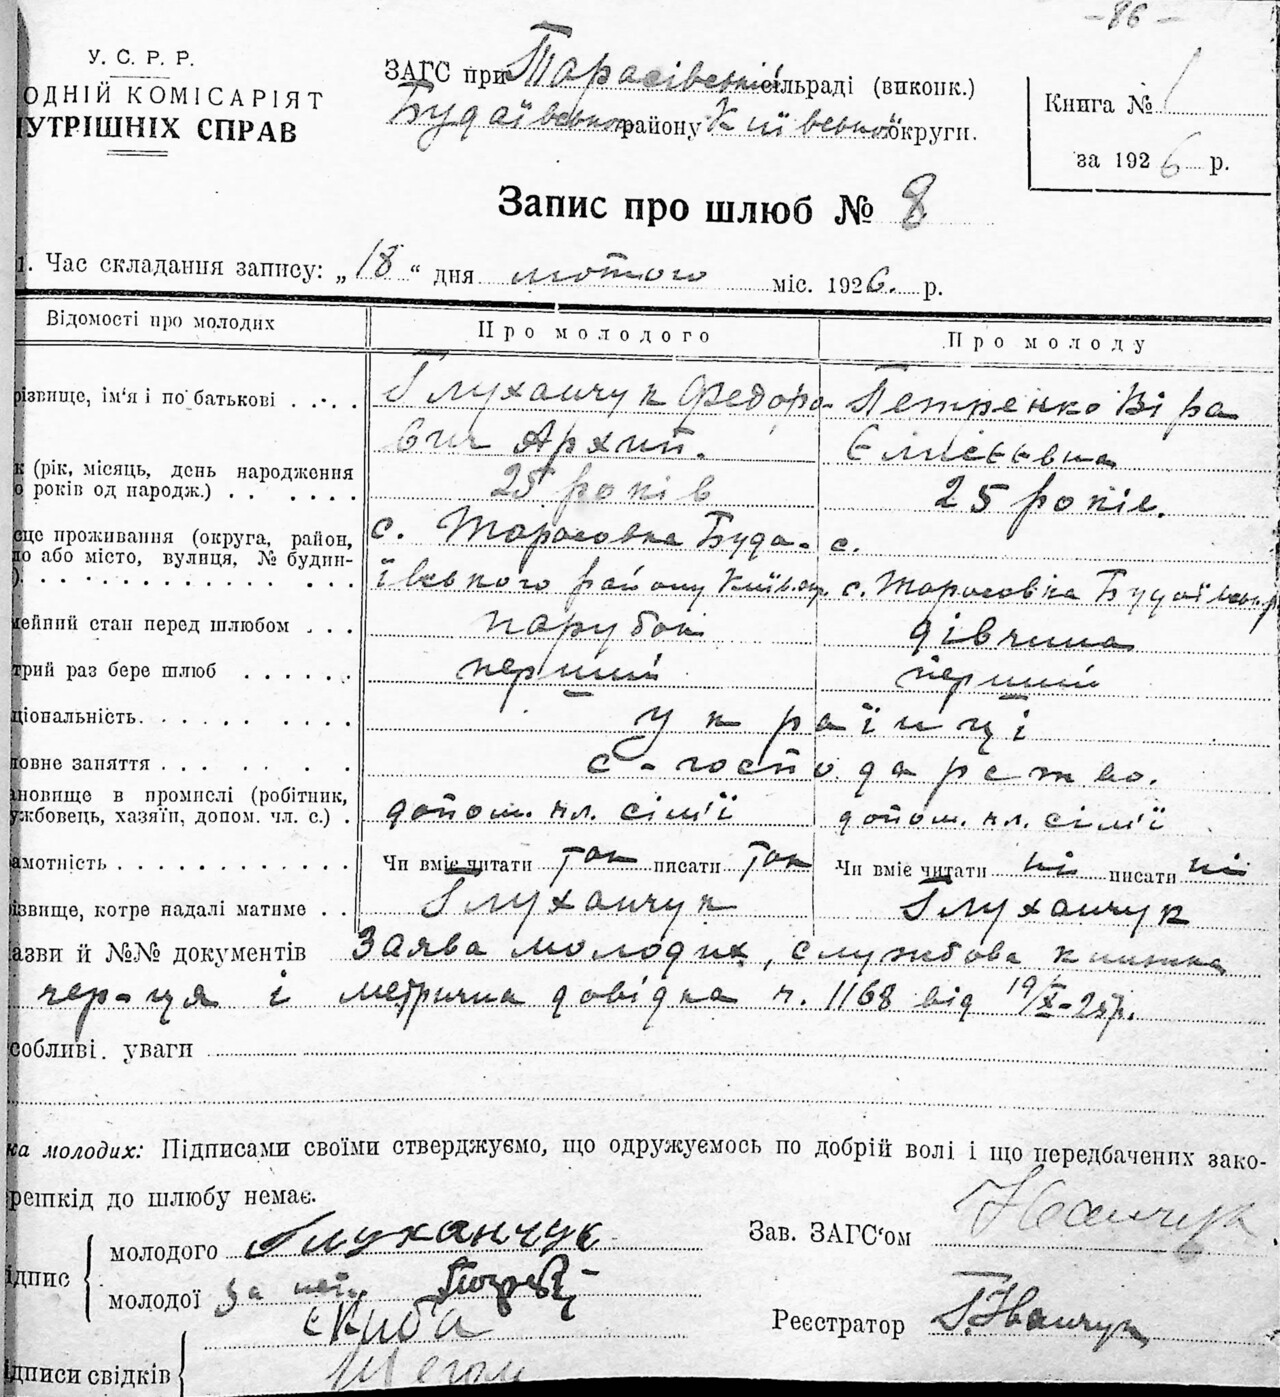 - 86 -
У. С. Р. Р.
ОДНІЙ КОМІСАРІЯТ
УТРІШНІХ СПРАВ
ЗАГС при Тарасівській сільраді (виконк.)
Будаївського району Київської округи.
Книга № 1
за 1926 р.
Запис про шлюб № 8
1. Час складання запису: „18“ дня лютого міс. 1926. р.
Відомості про молодих Про молодого Про молоду
різвище, ім'я і по батькові . . . . Глуханчук Федоро- Петренко Віра
вич Архип. Єлисєєвна
к (рік, місяць, день народження
о років од народж.) . . . . . . 25 років 25 років.
сце проживання (округа, район, с. Тарасовка Буда- с.
ло або місто, вулиця, № будин-
). . . . . . . . . . . . . . . ївського району Київ.окр. с. Тарасовка Будаївськ.р
мейний стан перед шлюбом . . . парубок дівчина
трий раз бере шлюб . . . . . . перший перший
ціональність. . . . . . . . . . українці
ловне заняття . . . . . . . с-господарство.
ановище в промислі (робітник,
ужбовець, хазяїн, допом. чл. с.) . допом. чл. сім'ї допом. чл. сім'ї
амотність . . . . . . . . . . . Чи вміє читати так писати так Чи вміє читати ні писати ні
ізвище, котре надалі матиме . . Глуханчук Глуханчук
азви й №№ документів Заява молодих, службова книжка
чер-ця і метрична довідка ч. 1168 від 19/X-25р.
собливі. уваги
ка молодих: Підписами своїми стверджуємо, що одружуємось по добрій волі і що передбачених зако-
решкід до шлюбу немає.
ідпис
молодого Глуханчук
молодої за неї
Зав. ЗАГС'ом Іванчук
Реєстратор Г.Іванчук
ідписи свідків
Є Киба